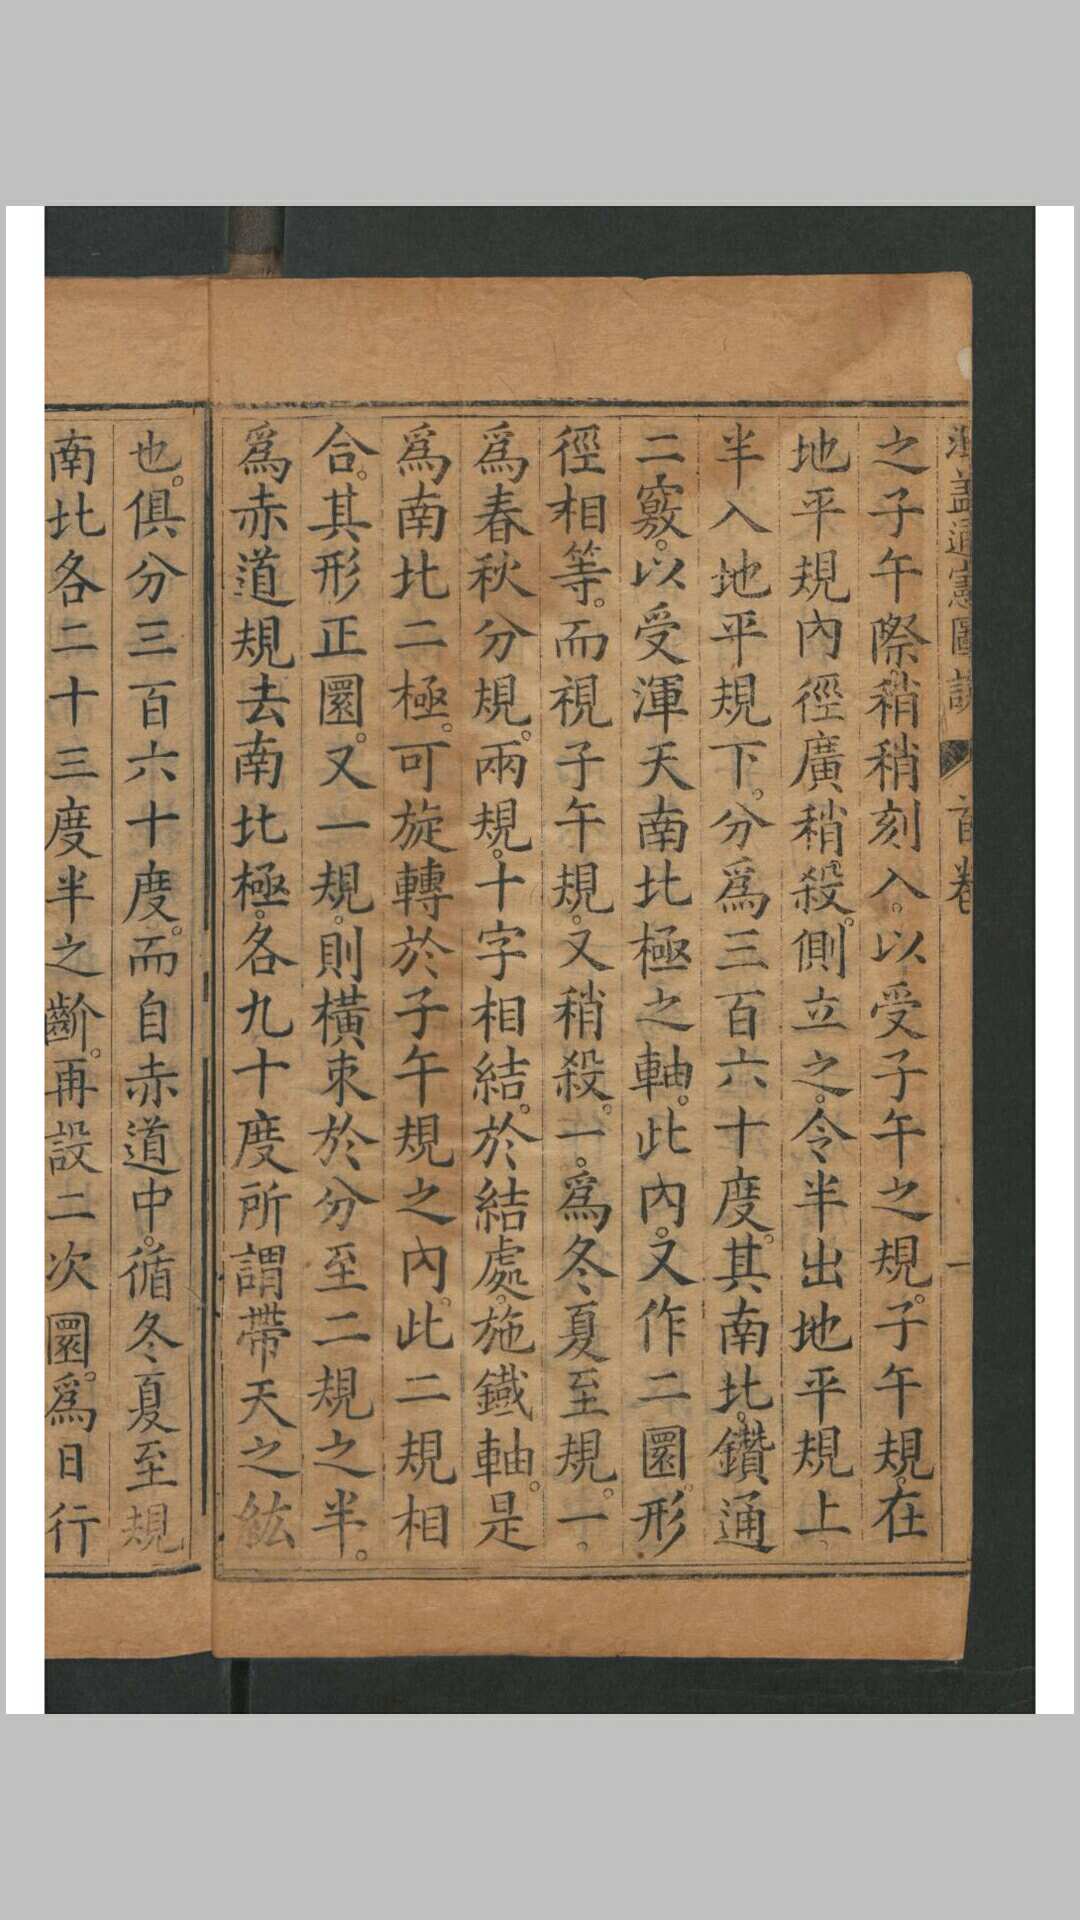 渾蓋通憲圖說 首卷 一
之子午際稍稍刻入。以受子午之規。子午規。在
地平規內徑廣稍殺。側立之。令半出地平規上。
半入地平規下。分爲三百六十度。其南北。鑽通
二竅。以受渾天南北極之軸。此內。又作二圜。形
徑相等。而視子午規。又稍殺。一。爲冬夏至規。一。
爲春秋分規。兩規。十字相結。於結處。施鐵軸。是
爲南北二極。可旋轉於子午規之內。此二規相
合。其形正圜。又一規。則橫束於分至二規之半。
爲赤道規去南北極。各九十度所謂帶天之紘
也。俱分三百六十度。而自赤道中。循冬夏至規
南北各二十三度半之齘。再設二次圜。爲日行